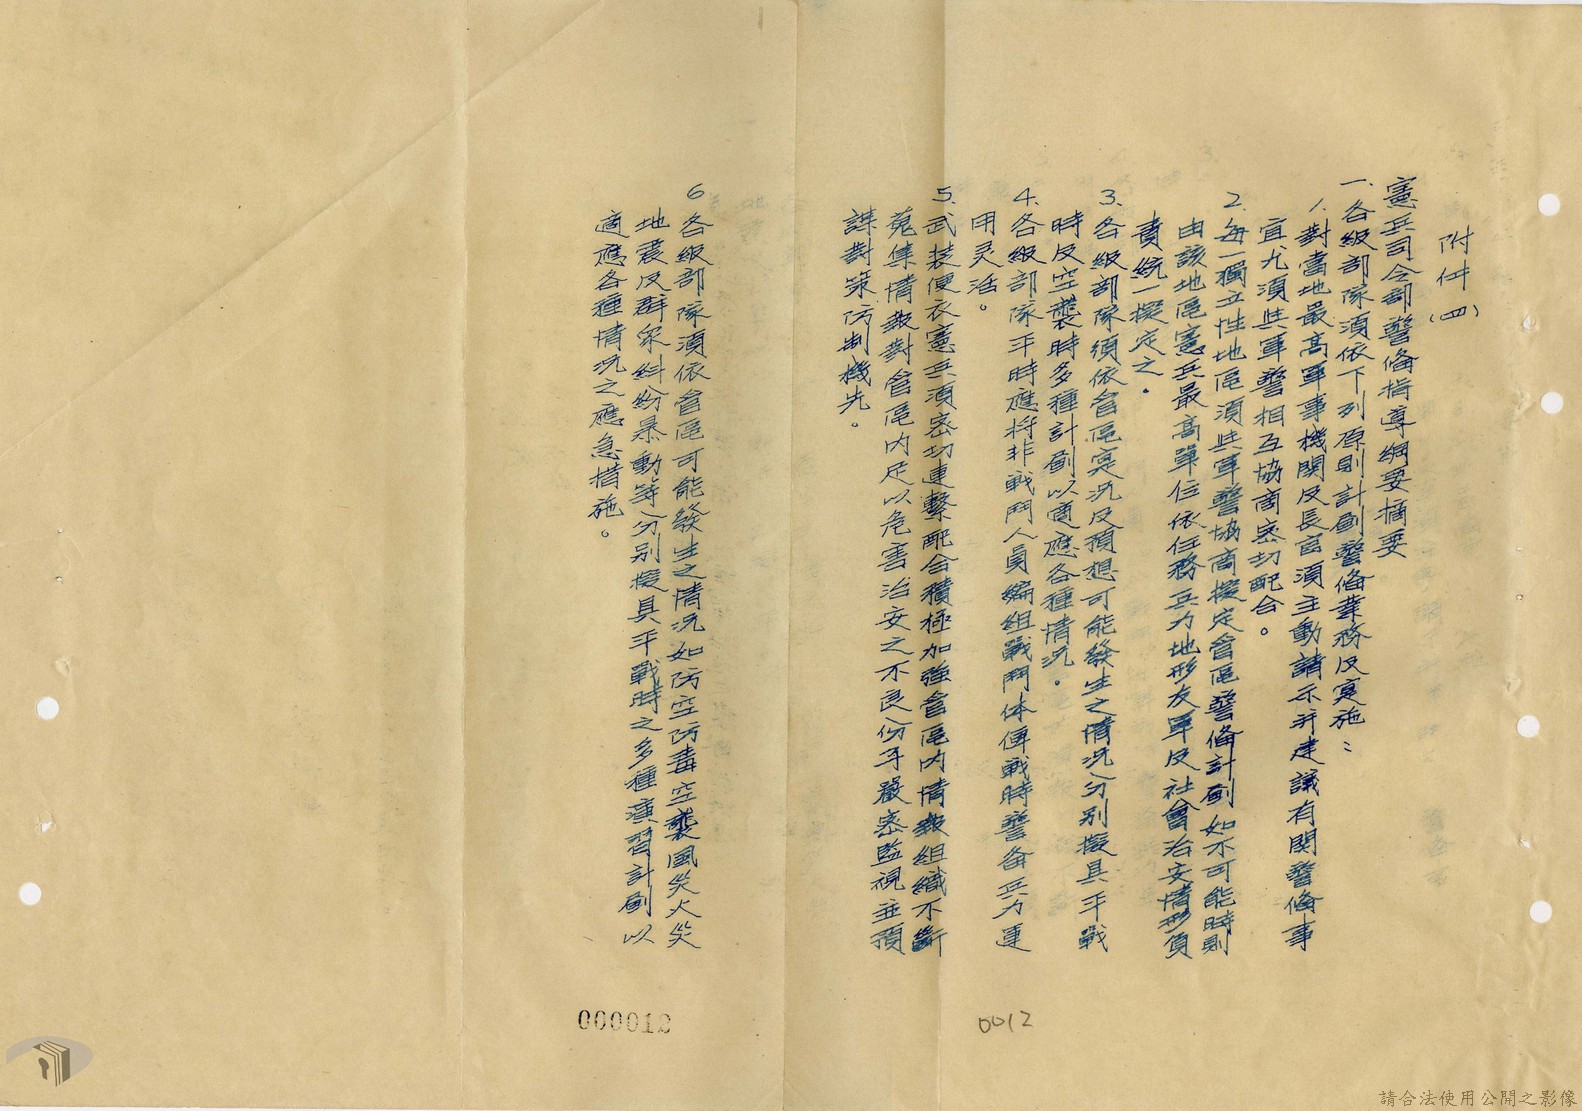 附件(四)
憲兵司令部警備指導綱要摘要
一、各級部隊須依下列原則計劃警備業務及實施：
1.對當地最高軍事機關及長官須主動請示并建議有関警備事
宜尤須與軍警相互協商密切配合。
2.每一獨立性地區須與軍警協商擬定會區警備計劃如不可能時則
由該地區憲兵最高單位依任務兵力地形友軍及社會治安情形負
責統一擬定之。
3.各級部隊須依會區實況及預想可能發生之情況分別擬具平戰
時及空襲時多種計劃以適應各種情況。
4.各級部隊平時應將非戰鬥人員編組戰鬥体俾戰時警备兵力運
用灵活。
5.武裝便衣憲兵須密切連繫配合積極加強會區內情報組織不斷
蒐集情報對會區內足以危害治安之不良份子嚴密監視並預
謀對策防制機先。
6各級部隊須依會區可能發生之情況如防空防毒空襲風災火災
地震及群眾糾紛暴動等分別擬具平戰時之多種演習計劃以
適應各種情況之應急措施。
000012
0012
請合法使用公開之影像